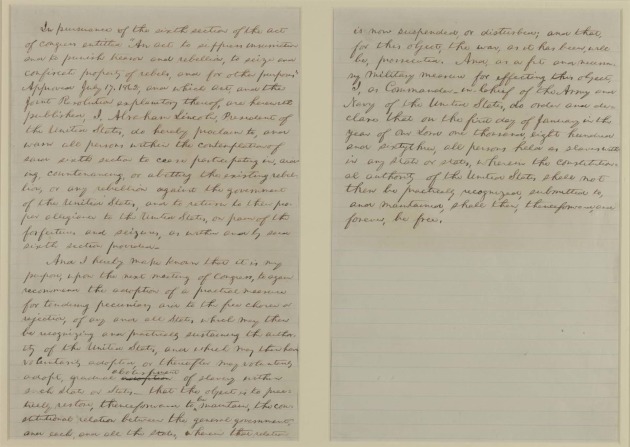 In pursuance of the sixth section of the act
of congress entitled "An act to suppress insurrection
and to punish treason and rebellion, to seize and
confiscate property of rebels, and for other purposes"
Approved July 17, 1862, and which act, and the
Joint Resolution explanatory thereof, are herewith
published, I, Abraham Lincoln, President of
the United States, do hereby proclaim to, and
warn all persons within the contemplation of
said sixth section to cease participating in, aid-
ing, countenancing, or abetting the existing rebel-
lion, or any rebellion against the government
of the United States, and to return to their pro-
per allegiance to the United States, on pain of the
forfeitures and seizures, as within and by said
sixth section provided.
And I hereby make known that it is my
purpose, upon the next meeting of Congress, to again
recommend the adoption of a practical measure
for tendering pecuniary aid to the free choice or
rejection, of any and all States which may then
be recognizing and practically sustaining the author-
ity of the United States, and which may then have
voluntarily adopted, or thereafter may voluntarily
adopt, gradual abolishment of slavery within
such State or States— that the object is to prac-
tically restore, thenceforward to be maintain, the con-
stitutional relation between the general government,
and each, and all the states, wherein that relation
is now suspended, or disturbed; and that,
for this object, the war, as it has been, will
be, prosecuted. And, as a fit and necessa-
ry military measure for effecting this object,
I, as Commander-in-Chief of the Army and
Navy of the United States, do order and de-
clare that on the first day of January in the
year of our Lord one thousand, eight hundred
and sixtythree, all persons held as slaves with-
in any state or states, wherein the constitution-
al authority of the United States shall not
then be practically recognized, submitted to,
and maintained, shall then, thenceforward, and
forever, be free.